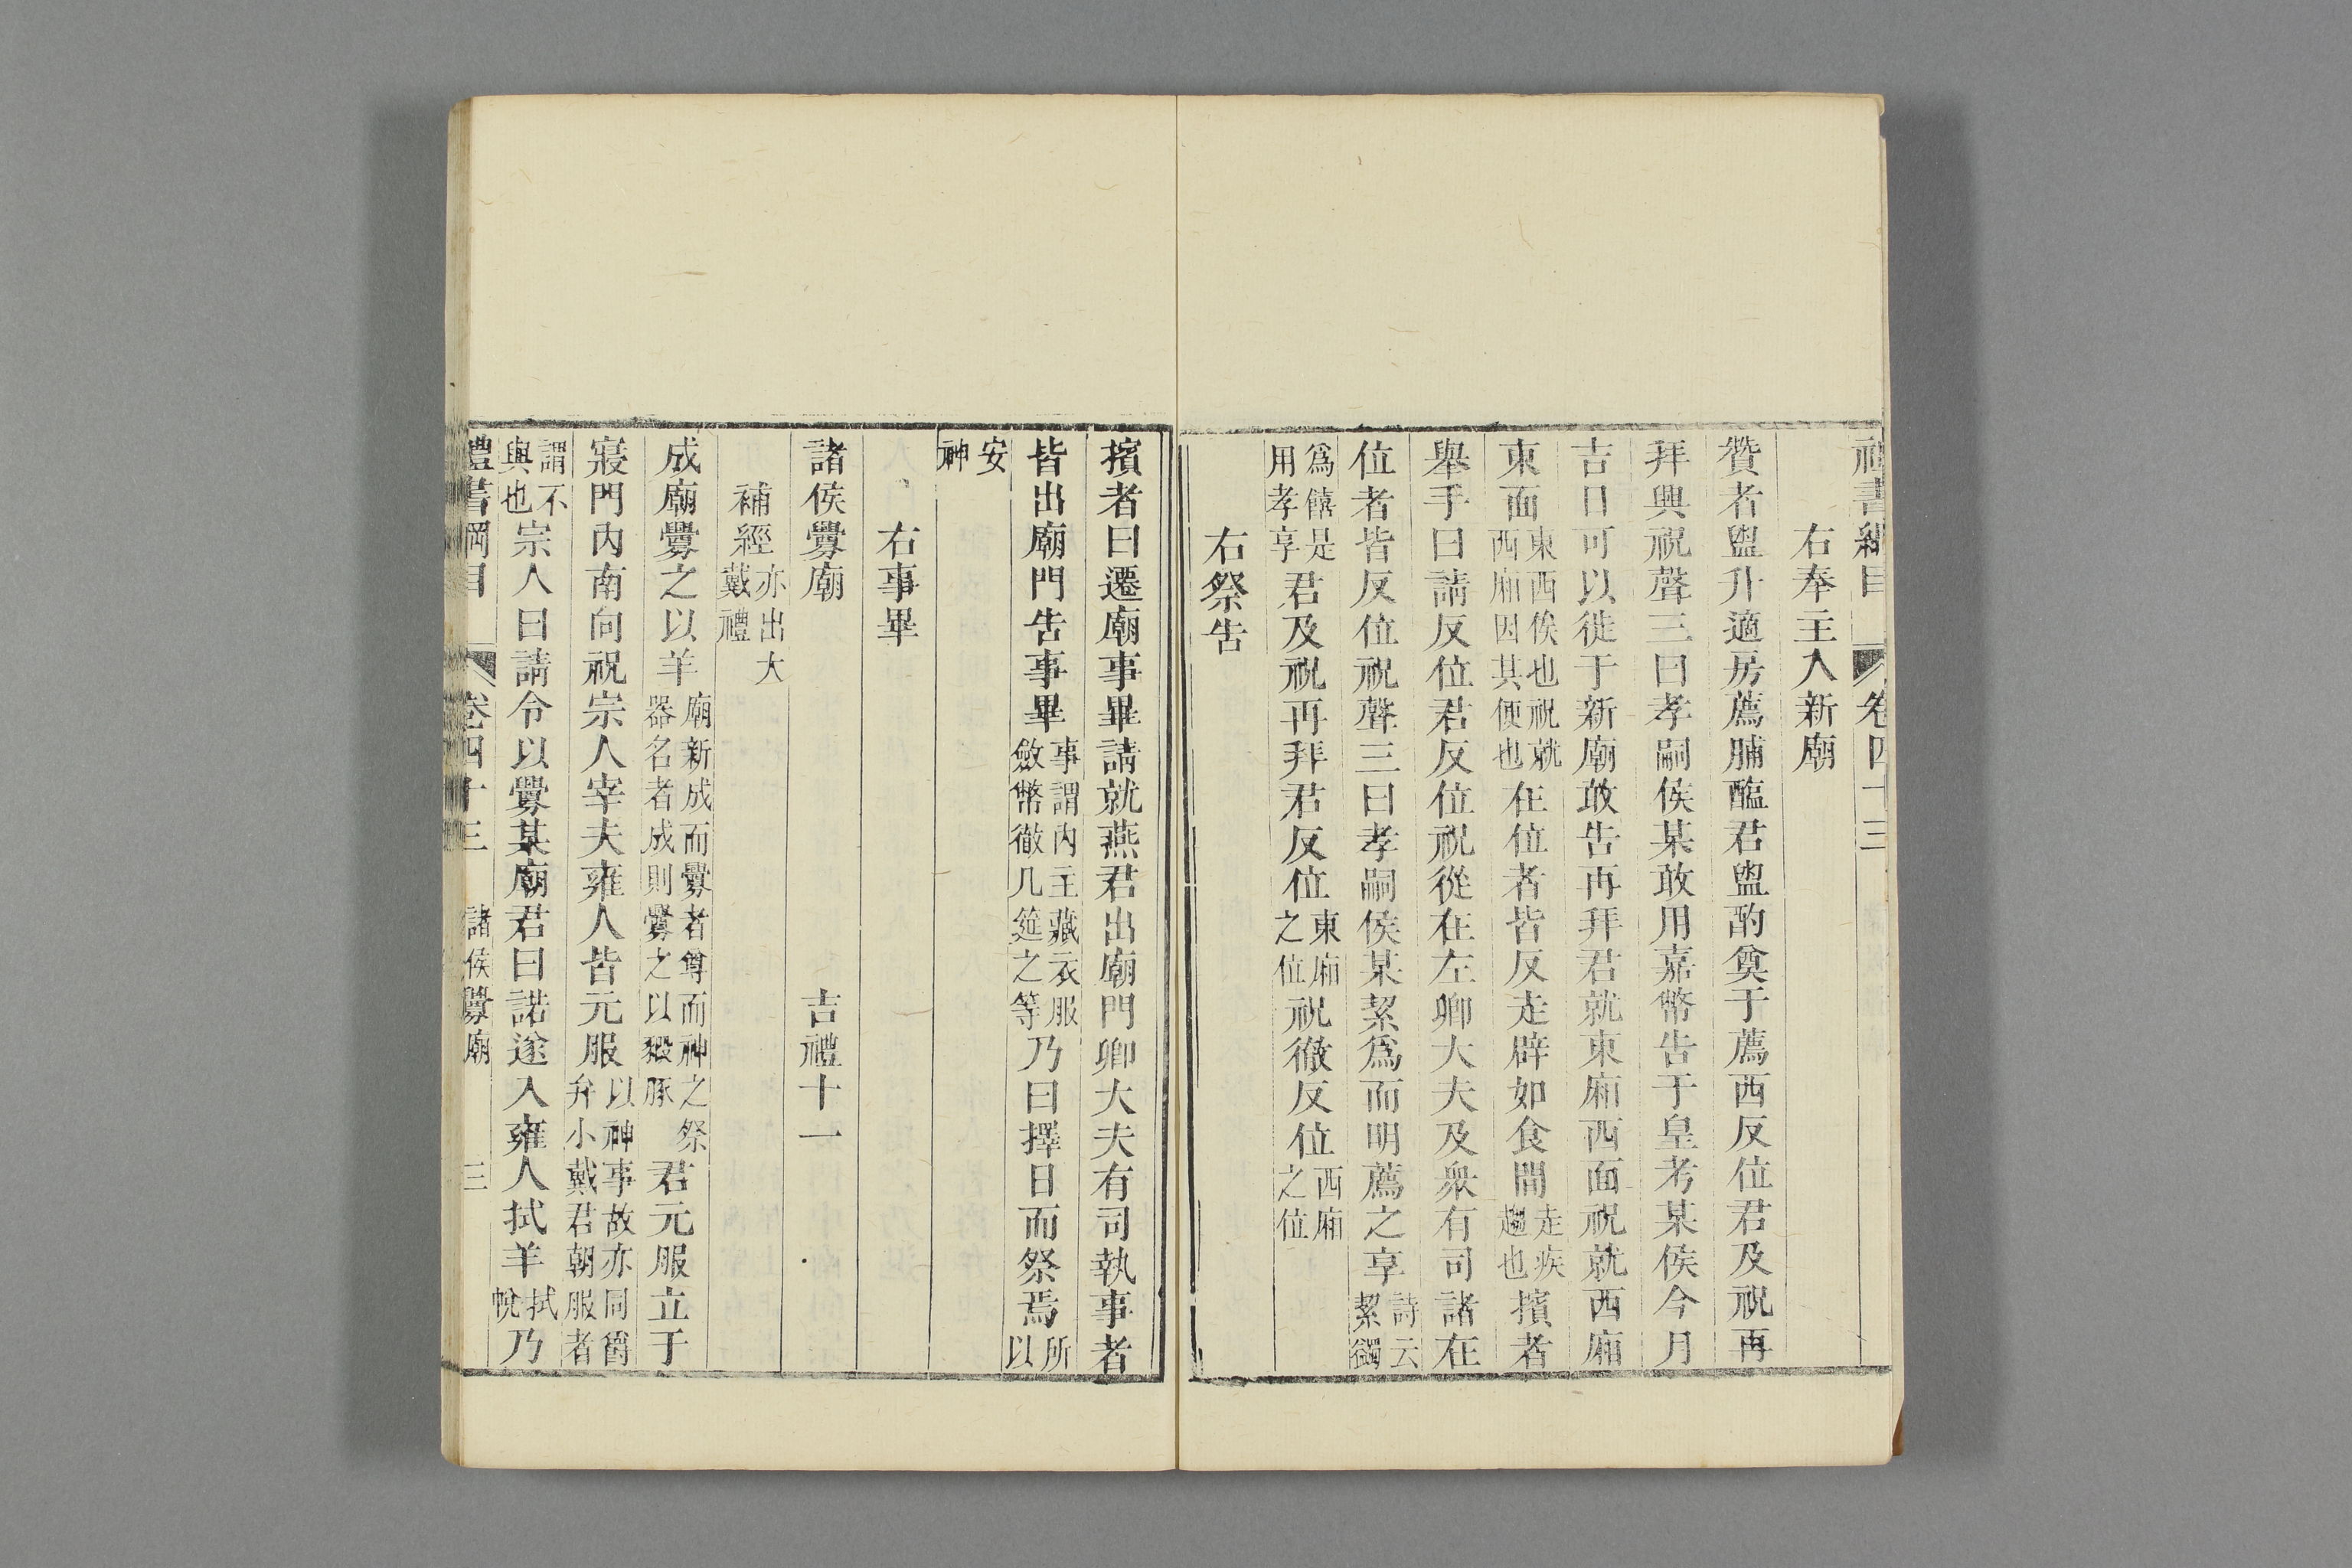 禮書綱目 卷四十三
右奉主入新廟
贊者盥升適房薦脯醢君盥酌奠于薦西反位君及祝再
拜興祝聲三曰孝嗣侯某敢用嘉幣告于皇考某侯今月
吉日可以徙于新廟敢告再拜君就東廂西面祝就西廂
東面東西俟也祝就西廂因其便也在位者皆反走辟如食間走疾趨也擯者
舉手曰請反位君反位祝從在左卿大夫及衆有司諸在
位者皆反位祝聲三曰孝嗣侯某絜爲而明薦之享詩云絜蠲
爲饎是用孝享君及祝再拜君反位東廂之位祝徹反位西廂之位
右祭告
擯者曰遷廟事畢請就燕君出廟門卿大夫有司執事者
皆出廟門告事畢事謂內主藏衣服斂幣徹几筵之等乃曰擇日而祭焉所以
安神
右事畢
諸侯釁廟 吉禮十一
補經亦出大戴禮
成廟釁之以羊廟新成而釁者尊而神之祭器名者成則釁之以豭豚君元服立于
寢門內南向祝宗人宰夫雍人皆元服以神事故亦同爵弁小戴君朝服者
謂不與也宗人曰請令以釁某廟君曰諾遂入雍人拭羊拭帨乃
禮書綱目 卷四十三 諸侯釁廟 三